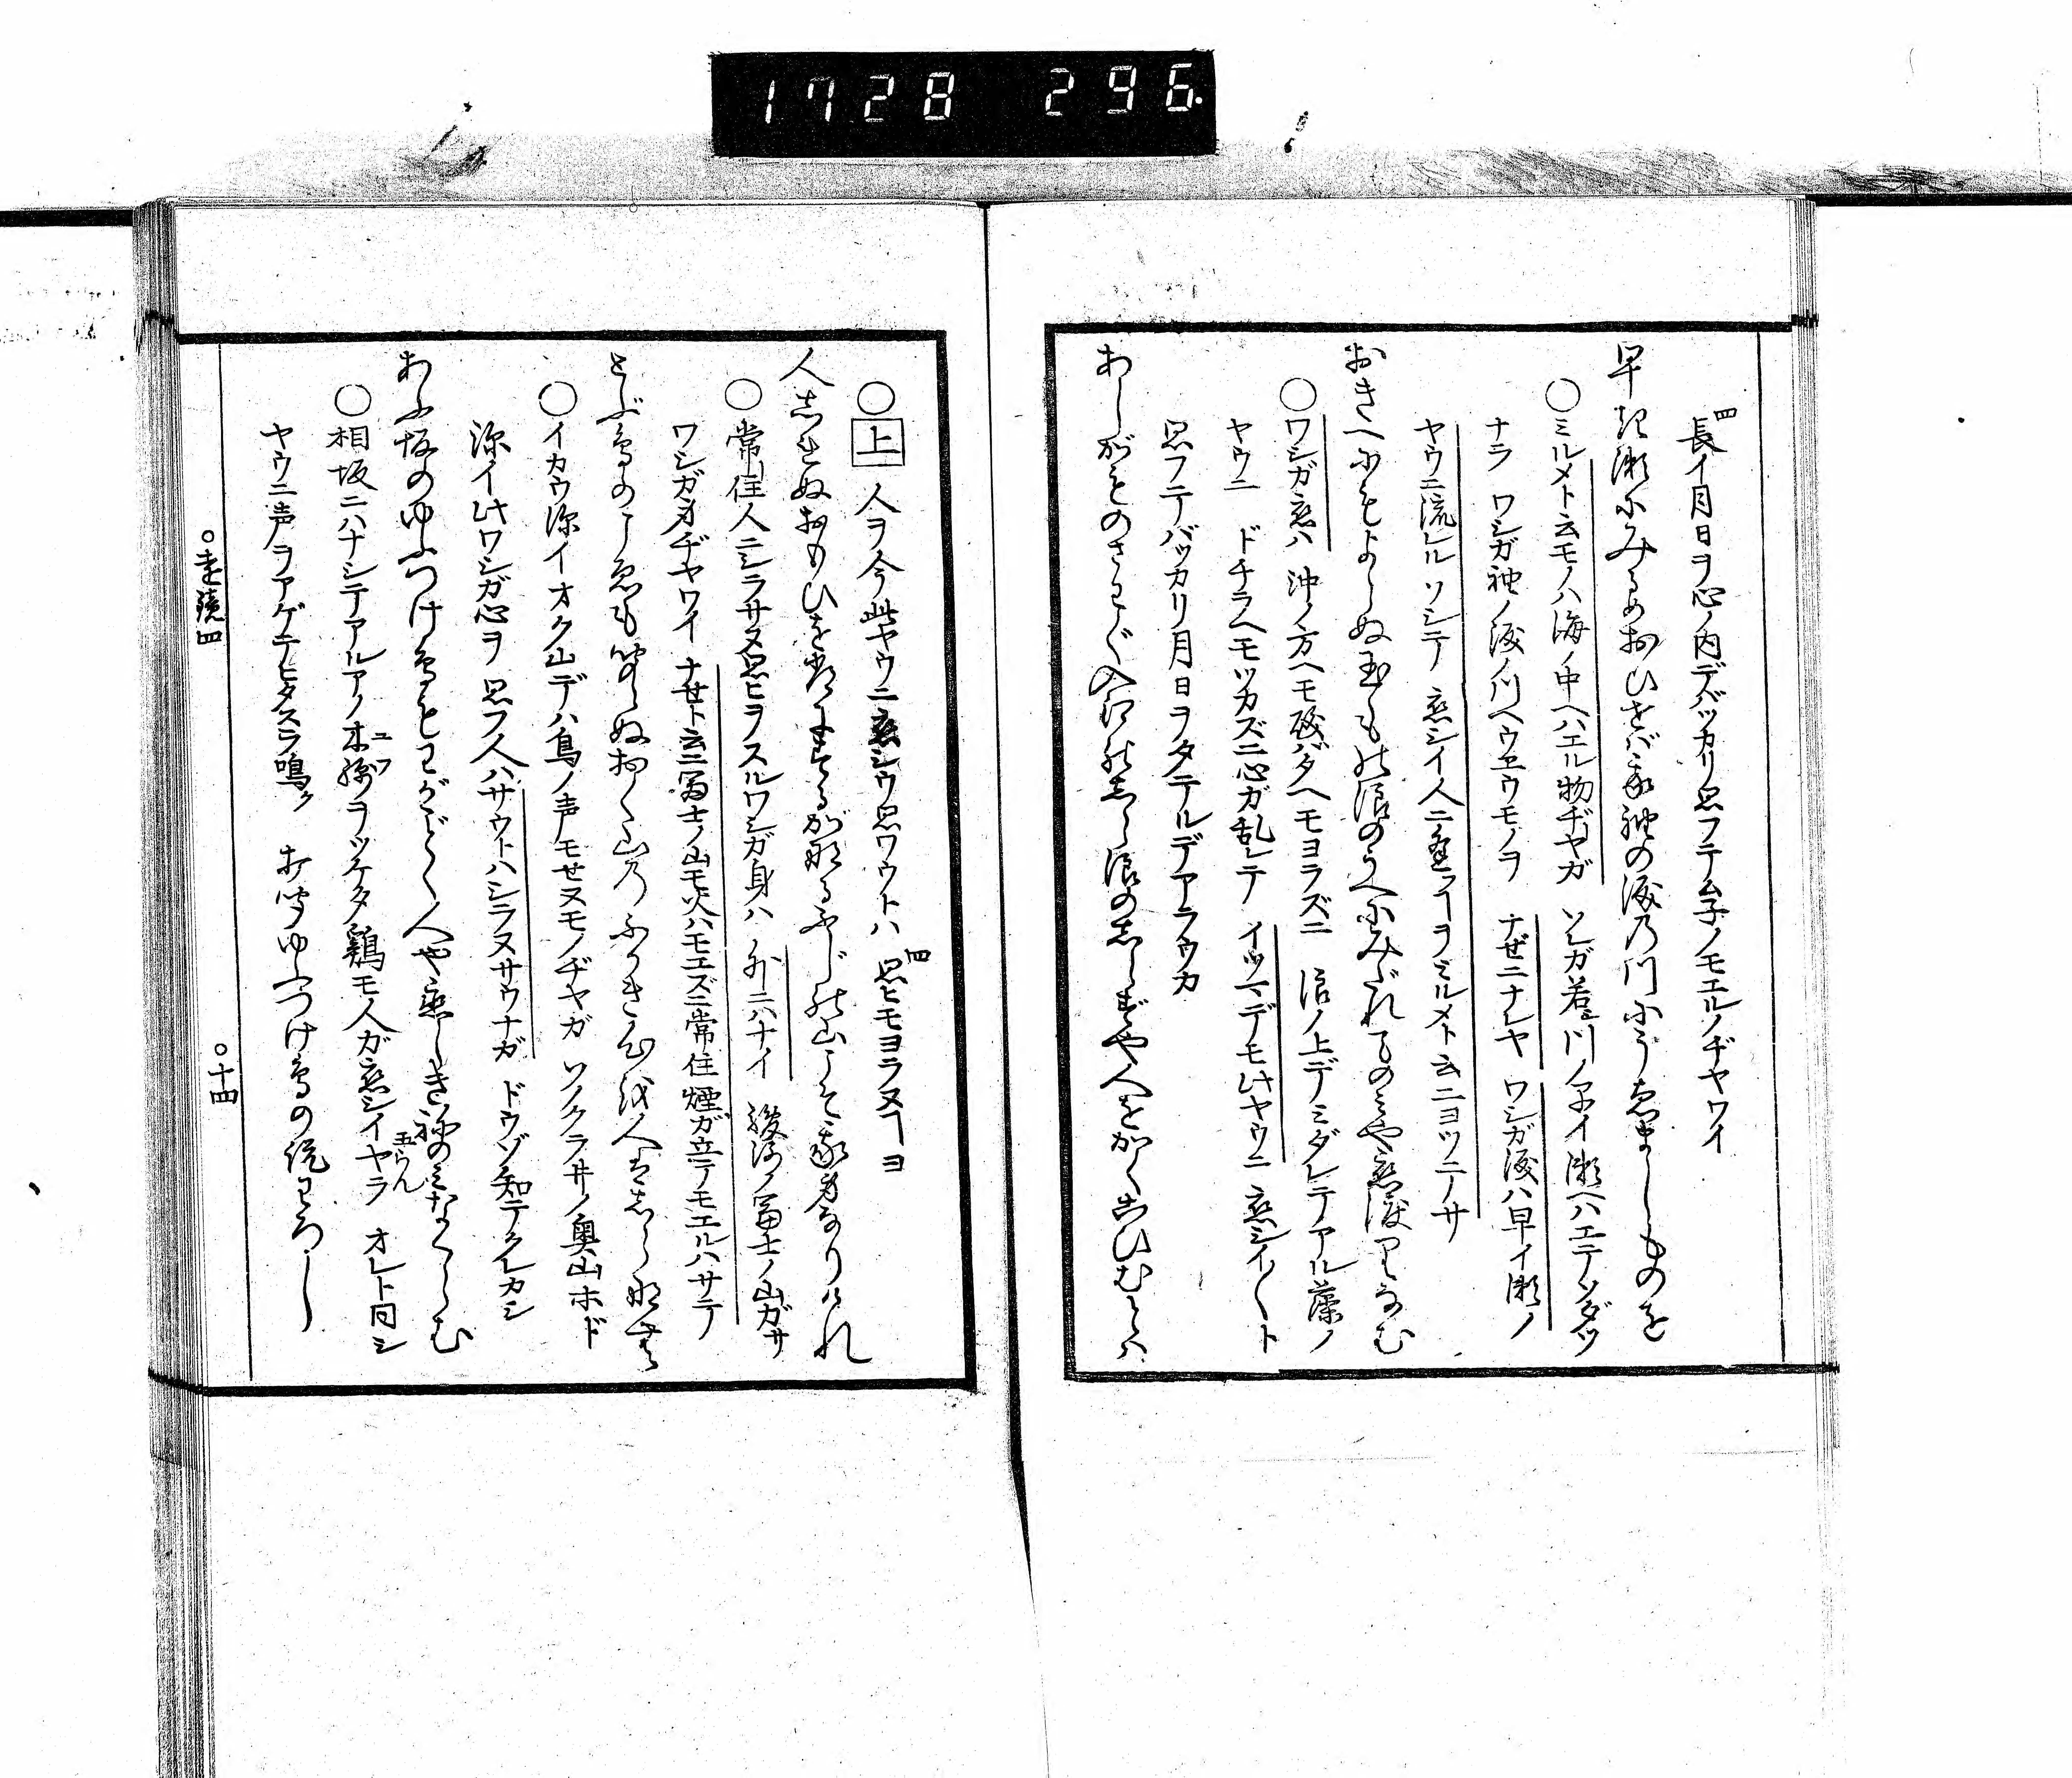 1728 296
四
長イ月日ヲ心ノ内デバッカリ思フテムネノモエルノヂヤワイ
早き瀬にみるめおひせば我袖の涙の川にうゑましものを
○ミルメト云モノハ海ノ中ヘハエル物ヂヤガ ソレガ若川ノ早イ瀬ヘハエテソダツ
ナラ ワシガ袖ノ涙ノ川ヘウヱウモノヲ ナゼニナレヤ ワシガ涙ハ早イ瀬ノ
ヤウニ流レル ソシテ 恋シイ人ニ逢フヿヲミルメト云ニヨツテサ
おきへにもよらぬ玉もの浪のうへにみだれてのみや恋渡りなむ
○ワシガ恋ハ 沖ノ方ヘモ磯バタヘモヨラズニ 浪ノ上デミダレテアル藻ノ
ヤウニ ドチラヘモツカズニ心ガ乱レテ イツマデモ此ヤウニ 恋シイ〱ト
思フテバッカリ月日ヲタテルデアラウカ
あしがものさわぐ入江の白浪のしらずや人をかくこひむとは
○上 人ヲ今此ヤウニ恋シウ思ワウトハ 四 思ヒモヨラヌヿヨ
人しれぬおもひを常にするが なるふじの山こそ我身なりけれ
○常住人ニシラサヌ思ヒヲスルワシガ身ハ 外ニハナイ 駿河ノ冨士ノ山ガサ
ワシガ身ヂヤワイ ナゼト云ニ冨士ノ山モ火ハモエズニ常住煙ガ立テモエルハサテ
とぶ鳥のこゑも聞えぬおく山の ふかき心を人はしらなむ
○イカウ深イオク山デハ鳥ノ声モセヌモノヂヤガ ソノクラヰノ奥山ホド
深イ此ワシガ心ヲ 思フ人ハサウトハシラヌサウナガ ドウゾ知テクレカシ
あふ坂のゆふつけ鳥もわがごとく人や恋しき音のみなくらむ
○相坂ニハナシテアルアノ木綿ヲツケタ鶏モ人ガ恋シイヤラ オレト同シ
ユフ
ヤウニ声ヲアゲテヒタスラ鳴ク 打聞ゆふつけ鳥の説わろし
○遠鏡四
○十四